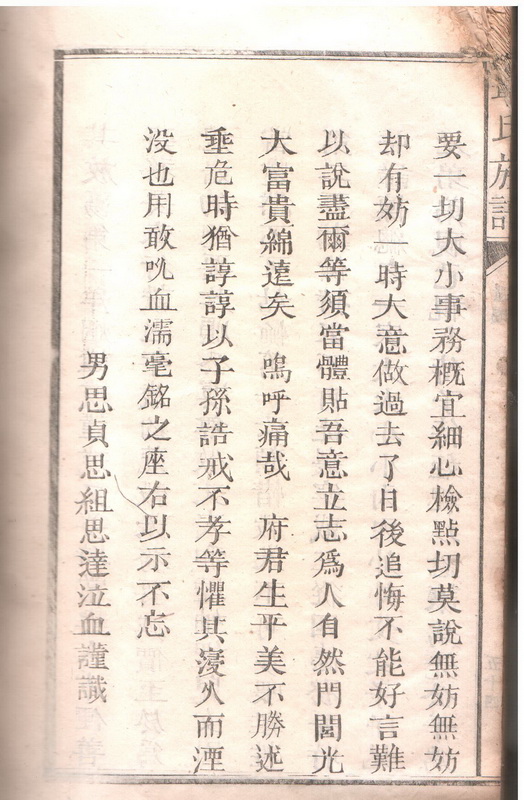 氏族譜
要一切大小事務概宜細心檢點切莫說無妨無妨
却有妨一時大意做過去了日後追悔不能好言難
以說盡爾等須當體貼吾意立志為人自然門閭光
大富貴綿遠矣　嗚呼痛哉　府君生平美不勝述
垂危時猶諄諄以子孫誥戒不孝等懼其寖久而湮
没也用敢吮血濡毫銘之座右以示不忘
男思貞思組思達泣血謹識